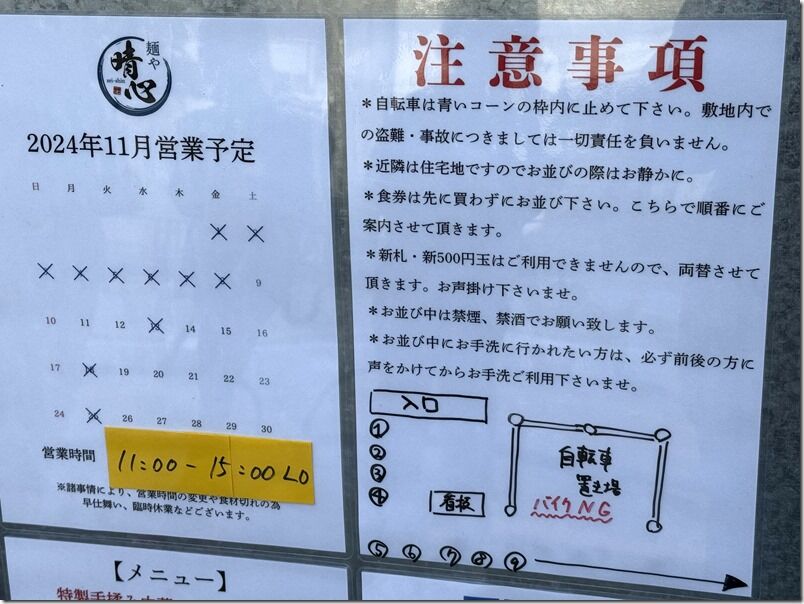 麺や
晴心
sei-shin
2024年11月営業予定
日 月 火 水 木 金 土
9
10 11 12 13 14 15 16
17 18 19 20 21 22 23
24 25 26 27 28 29 30
営業時間
11:00 - 15:00 LO
※諸事情により、営業時間の変更や食材切れの為
早仕舞い、臨時休業などございます。
【メニュー】
特製手揉み中華
注意事項
＊自転車は青いコーンの枠内に止めて下さい。敷地内で
の盗難・事故につきましては一切責任を負いません。
＊近隣は住宅地ですのでお並びの際はお静かに。
＊食券は先に買わずにお並び下さい。こちらで順番にご
案内させて頂きます。
＊新札・新500円玉はご利用できませんので、両替させて
頂きます。お声掛け下さいませ。
＊お並び中は禁煙、禁酒でお願い致します。
＊お並び中にお手洗に行かれたい方は、必ず前後の方に
声をかけてからお手洗ご利用下さいませ。
入口
①
②
③
④
看板
自転車
置き場
バイクNG
⑤ ⑥ ⑦ ⑧ ⑨